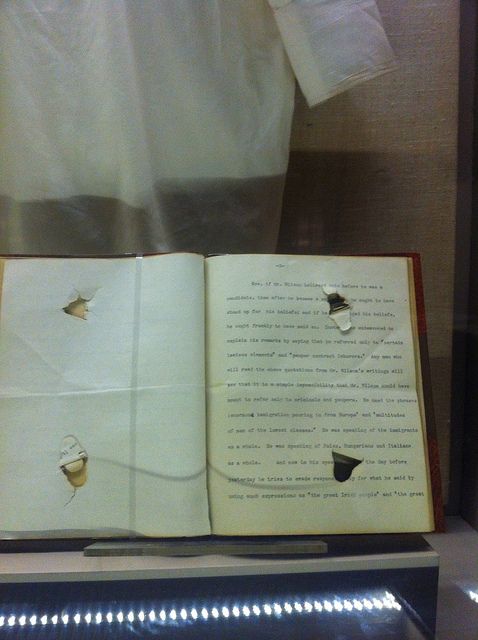 Now, if Mr. Wilson believed this before he was a
candidate, then after he became a he ought to have
stood up for his beliefs; and if he his beliefs,
he ought frankly to have said so. endeavored to
explain his remarks by saying that he referred only to "certain
lawless elements" and "pauper contract laborers." Any man who
will read the above quotations from Mr. Wilson's writings will
see that it is a simple impossibility that Mr. Wilson could have
meant to refer only to criminals and paupers. He used the phrases
immigration pouring in from Europe" and "multitudes
of men of the lowest classes." He was speaking of the immigrants
as a whole. He was speaking of Poles, Hungarians and Italians
as a whole. And now in his the day before
yesterday he tries to evade for what he said by
using such expressions as "the great Irish people" and "the great